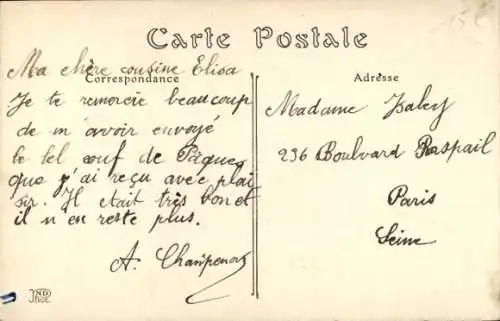 15 €
Carte Postale
Ma chère cousine Elisa
Correspondance
Je te remercie beaucoup
de m'avoir envoyé
le bel œuf de Pâques
que j'ai reçu avec plai
sir. Il était très bon et
il n'en reste plus.
A.
Adresse
Madame
236 Boulvard Raspail
Paris
Seine
ND
PHOT